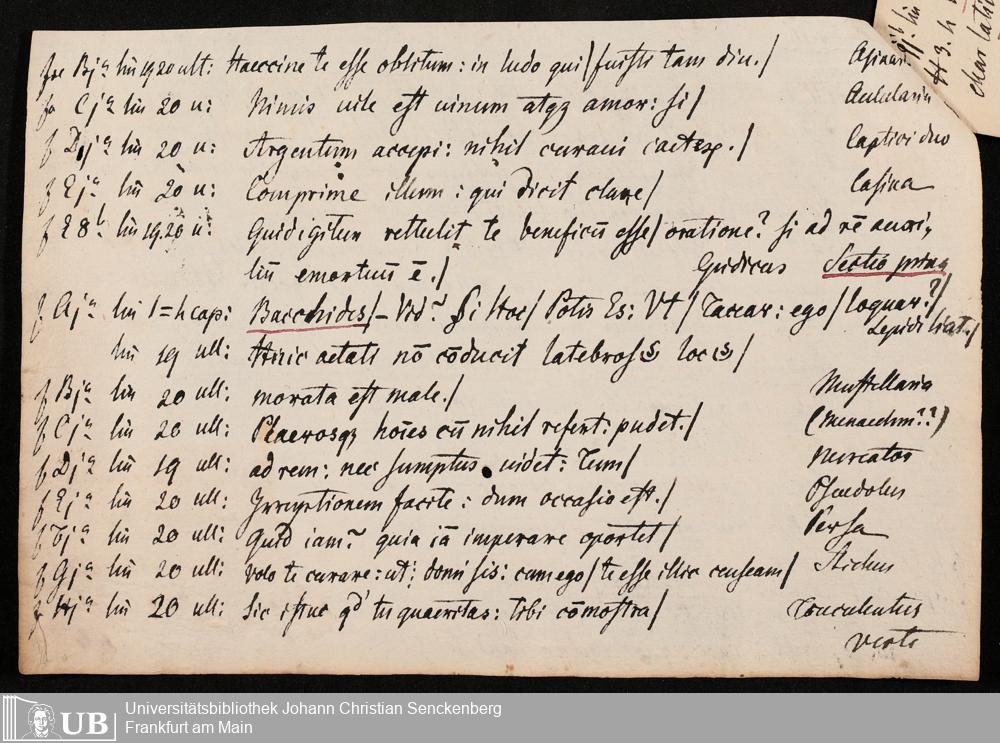 Bja lin 19 20 ult: Haeccine te esse oblitum: in ludo qui/fuisti tam diu./ Asinari
Cja lin 20 u: Nimis vile est uinum atqz amor: si/ Aulularia
f Dja lin 20 u: Argentum accepi: nihil curaui / Captivi duo
f Eja lin 20 u: Comprime illum: qui dicit clare/ Casina
f E8b lin 19.20 u: Quid igitur rettulit te beneficū esse/oratione? si ad rē auxi,
liū emortuū ē./ Gudicus Sectio prima
f Aja lin 1 = h cap: Bacchides/– Vid~ Si Hoc/ Potis Es: Vt/ Taccar: ego/loquar?/
Lepidi
lin 19 ult: Huic aetati nō cōducit latebrosis locis/
f Bja lin 20 ult: morata est male./ Mustellaria
f Cja lin 20 ult: Plaerosqz hoīes cū nihil refert: pudet./ (Menaechm??)
f Dja lin 19 ult: ad rem: nec sumptus uidet: Tum/ Mercator
f Eja lin 20 ult: Irruptionem facite: dum occasio est./ Pseudolus
f Fja lin 20 ult: Quid iam? quia iā imperare oportet/ Persa
f Gja lin 20 ult: Volo te curare: ut domi sis: cum ego/te esse illic censeam/ Stichus
f Hja lin 20 ult: Sic istuc qd tu quaeritas: tibi cōmostra/ Truculentus
verte
H 3. h
charlati
UB
Universitätsbibliothek Johann Christian Senckenberg
Frankfurt am Main